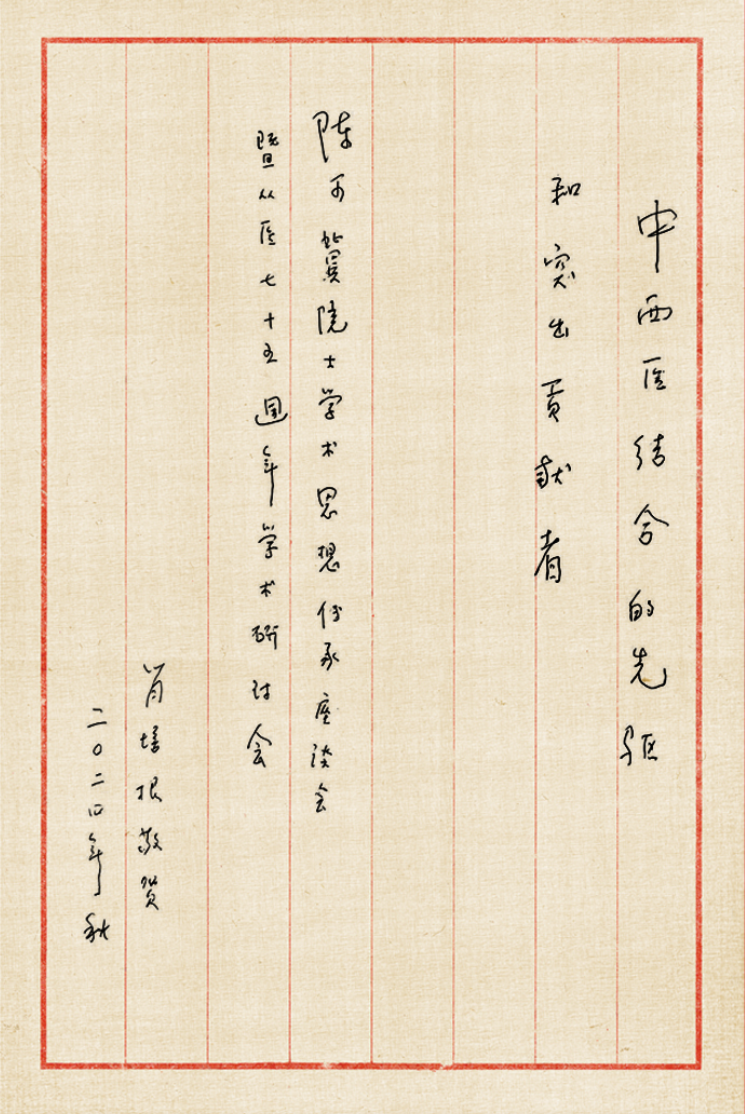 中西医结合的先驱
和突出贡献者
陈可冀院士学术思想传承座谈会
暨从医七十五週年学术研讨会
肖培根敬贺
二〇二四年秋